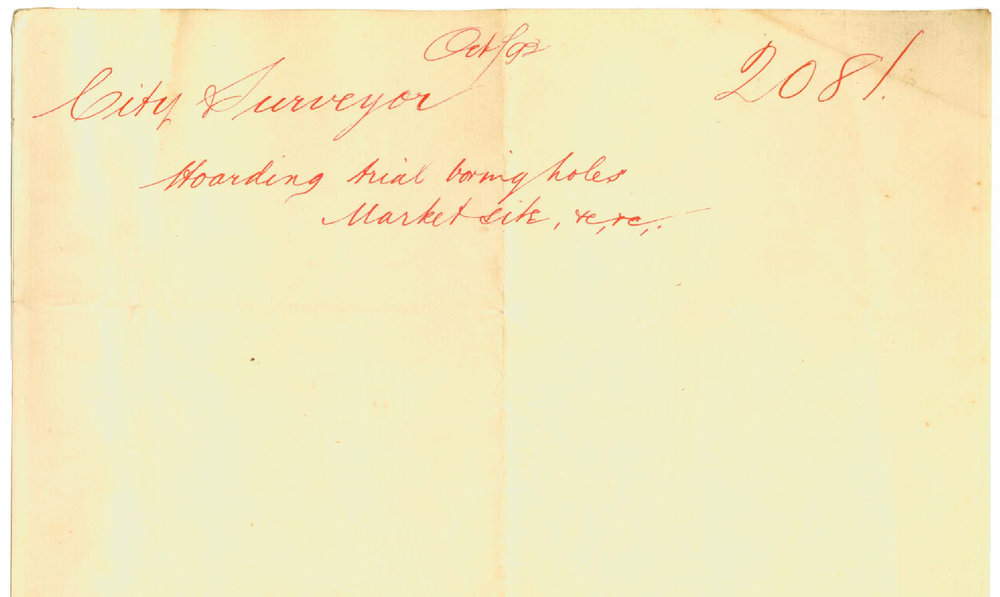 Oct/92
2081.
City Surveyor
Hoarding trial boring holes
Market site, &c, &c,.